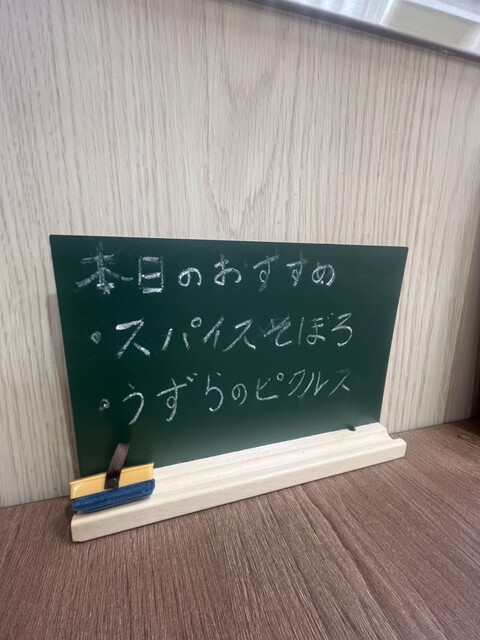 本日のおすすめ
・スパイスそぼろ
・うずらのピクルス